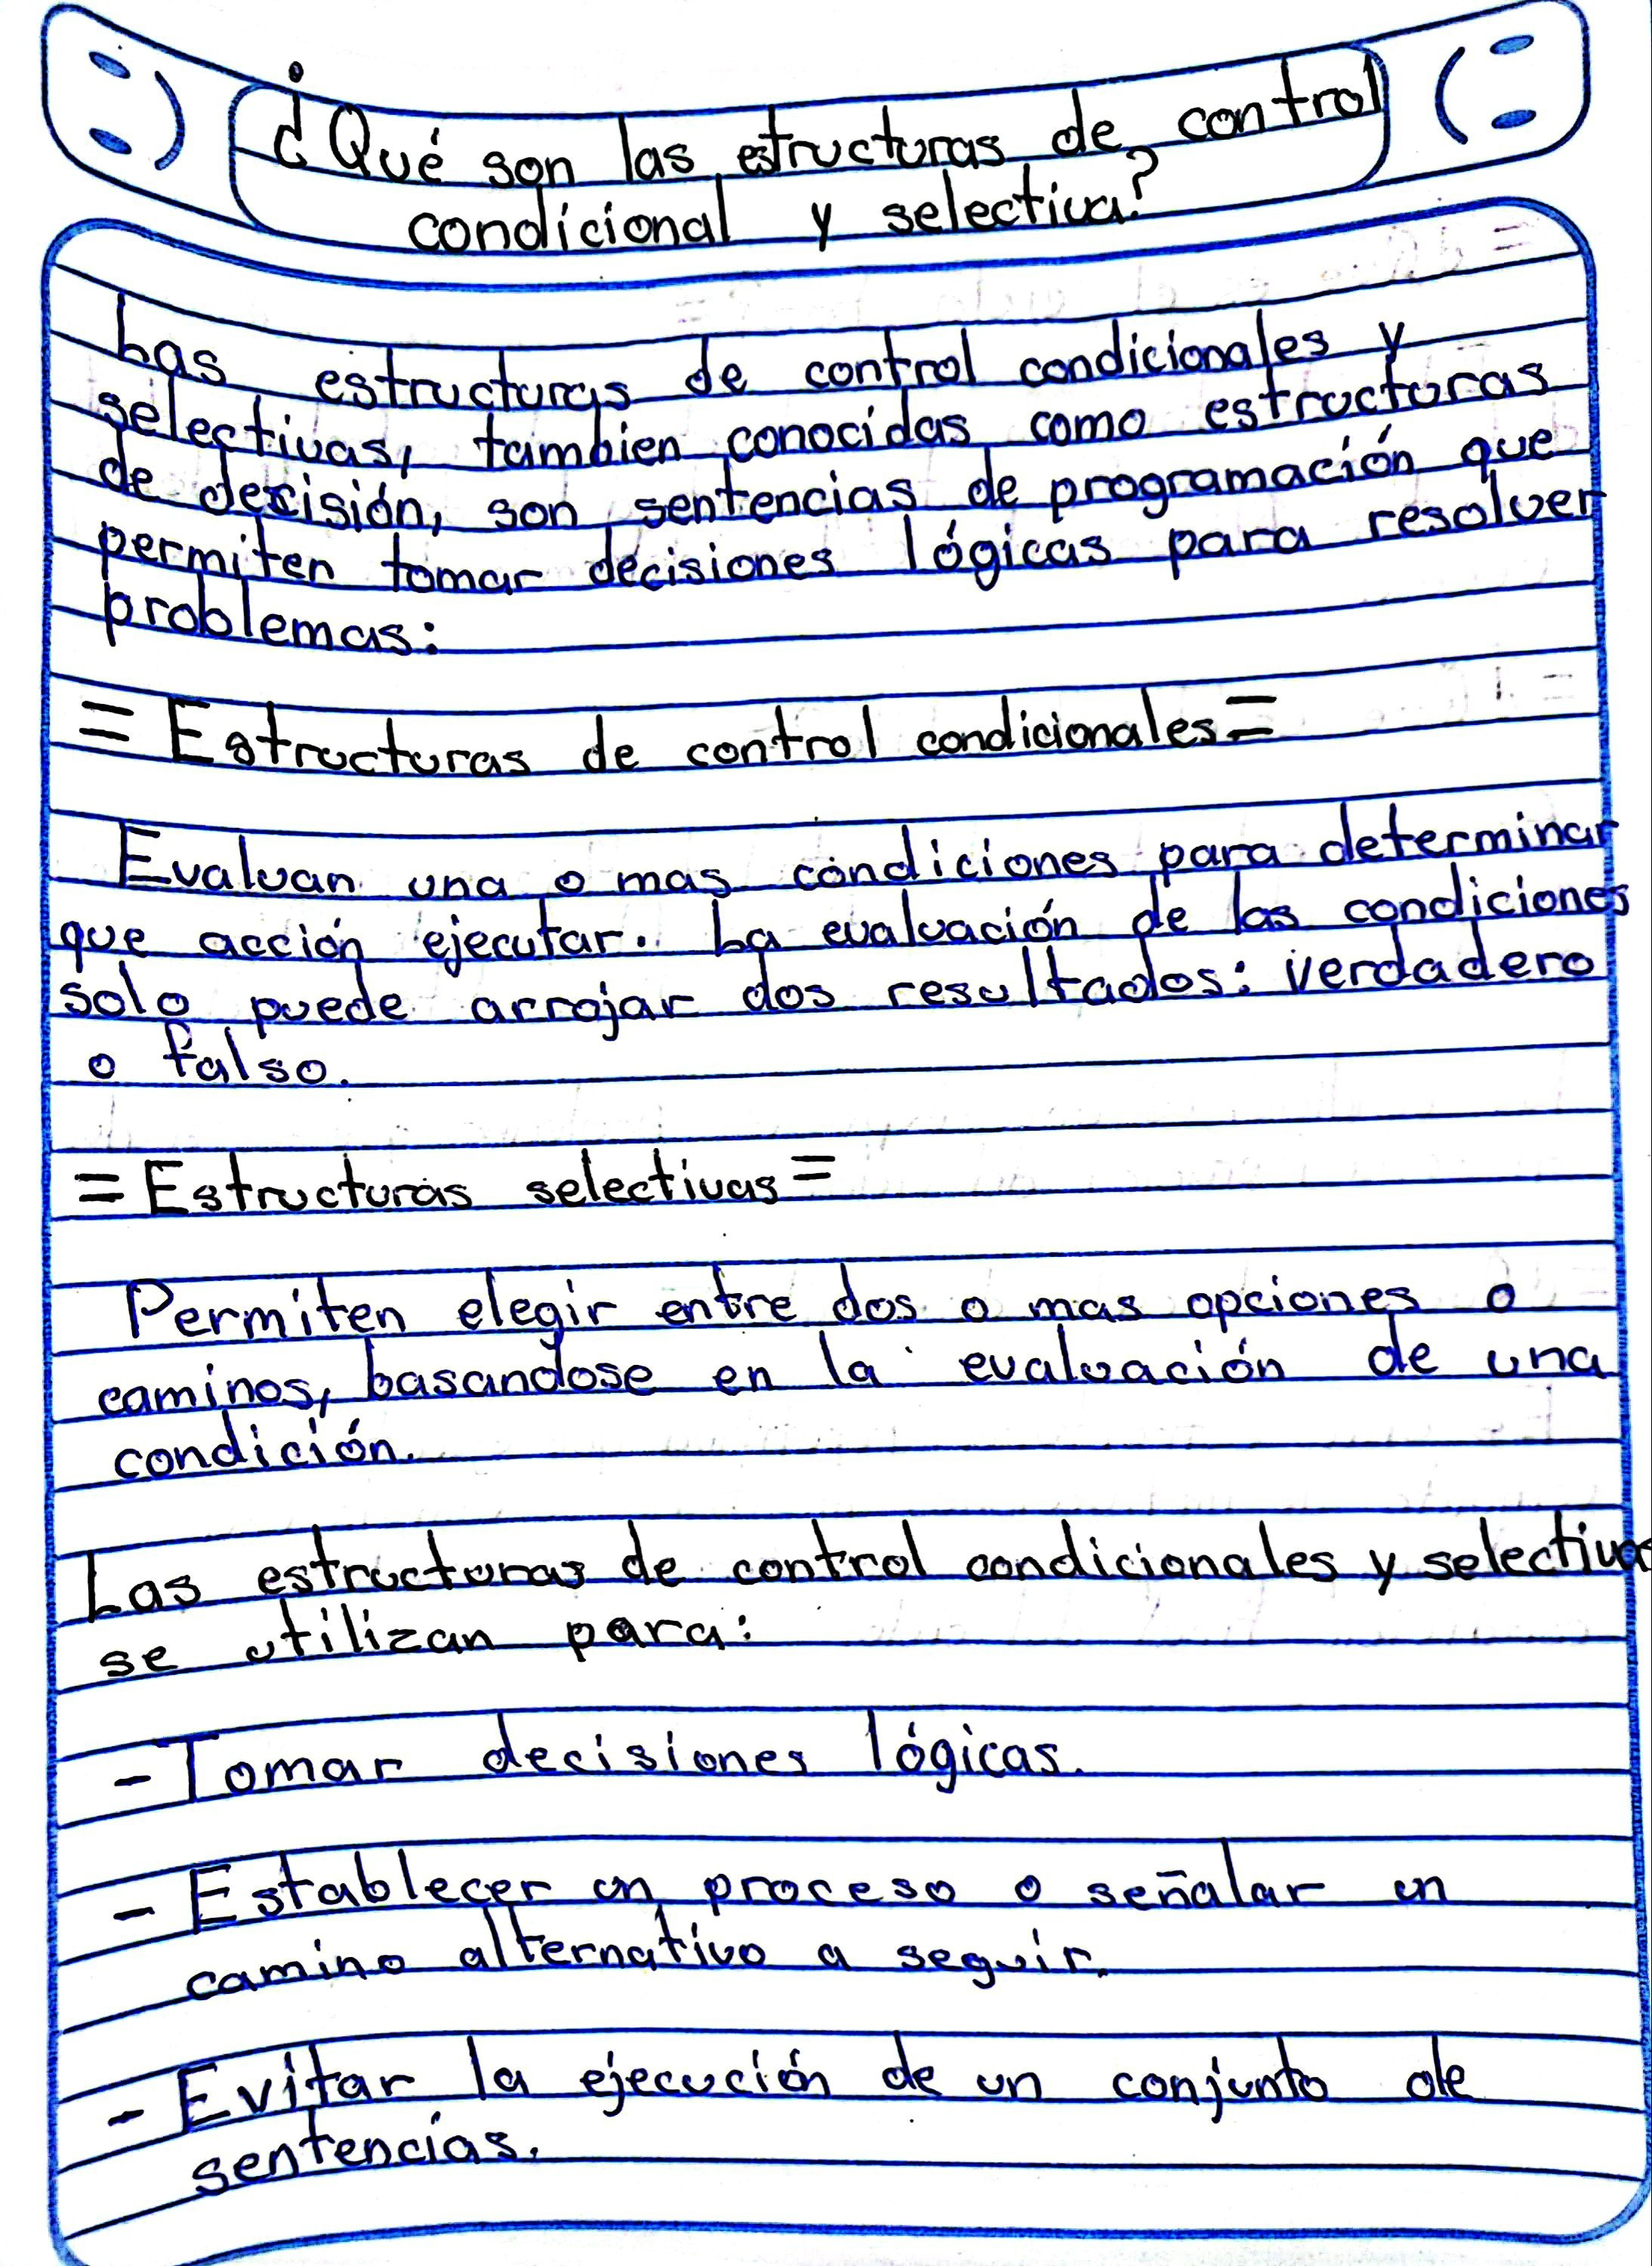 ¿Qué son las estructuras de control
condicional y selectiva?
Las estructuras de control condicionales y
selectivas, tambien conocidas como estructuras
de decisión, son sentencias de programación que
permiten tomar decisiones lógicas para resolver
problemas:
= Estructuras de control condicionales =
Evaluan una o mas condiciones para determinar
que acción ejecutar. La evaluación de las condiciones
solo puede arrojar dos resultados: verdadero
o falso.
= Estructuras selectivas =
Permiten elegir entre dos o mas opciones o
caminos, basandose en la evaluación de una
condición.
Las estructuras de control condicionales y selectivas
se utilizan para:
- Tomar decisiones lógicas.
- Establecer un proceso o señalar un
camino alternativo a seguir.
- Evitar la ejecución de un conjunto de
sentencias.